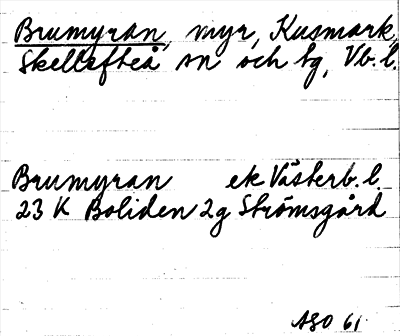 Brumyran, myr, Kusmark,
Skellefteå sn och tg, Vb. l.
Brumyran ek Västerb. l.
23 K Boliden 2g Strömsgård
ASO 61